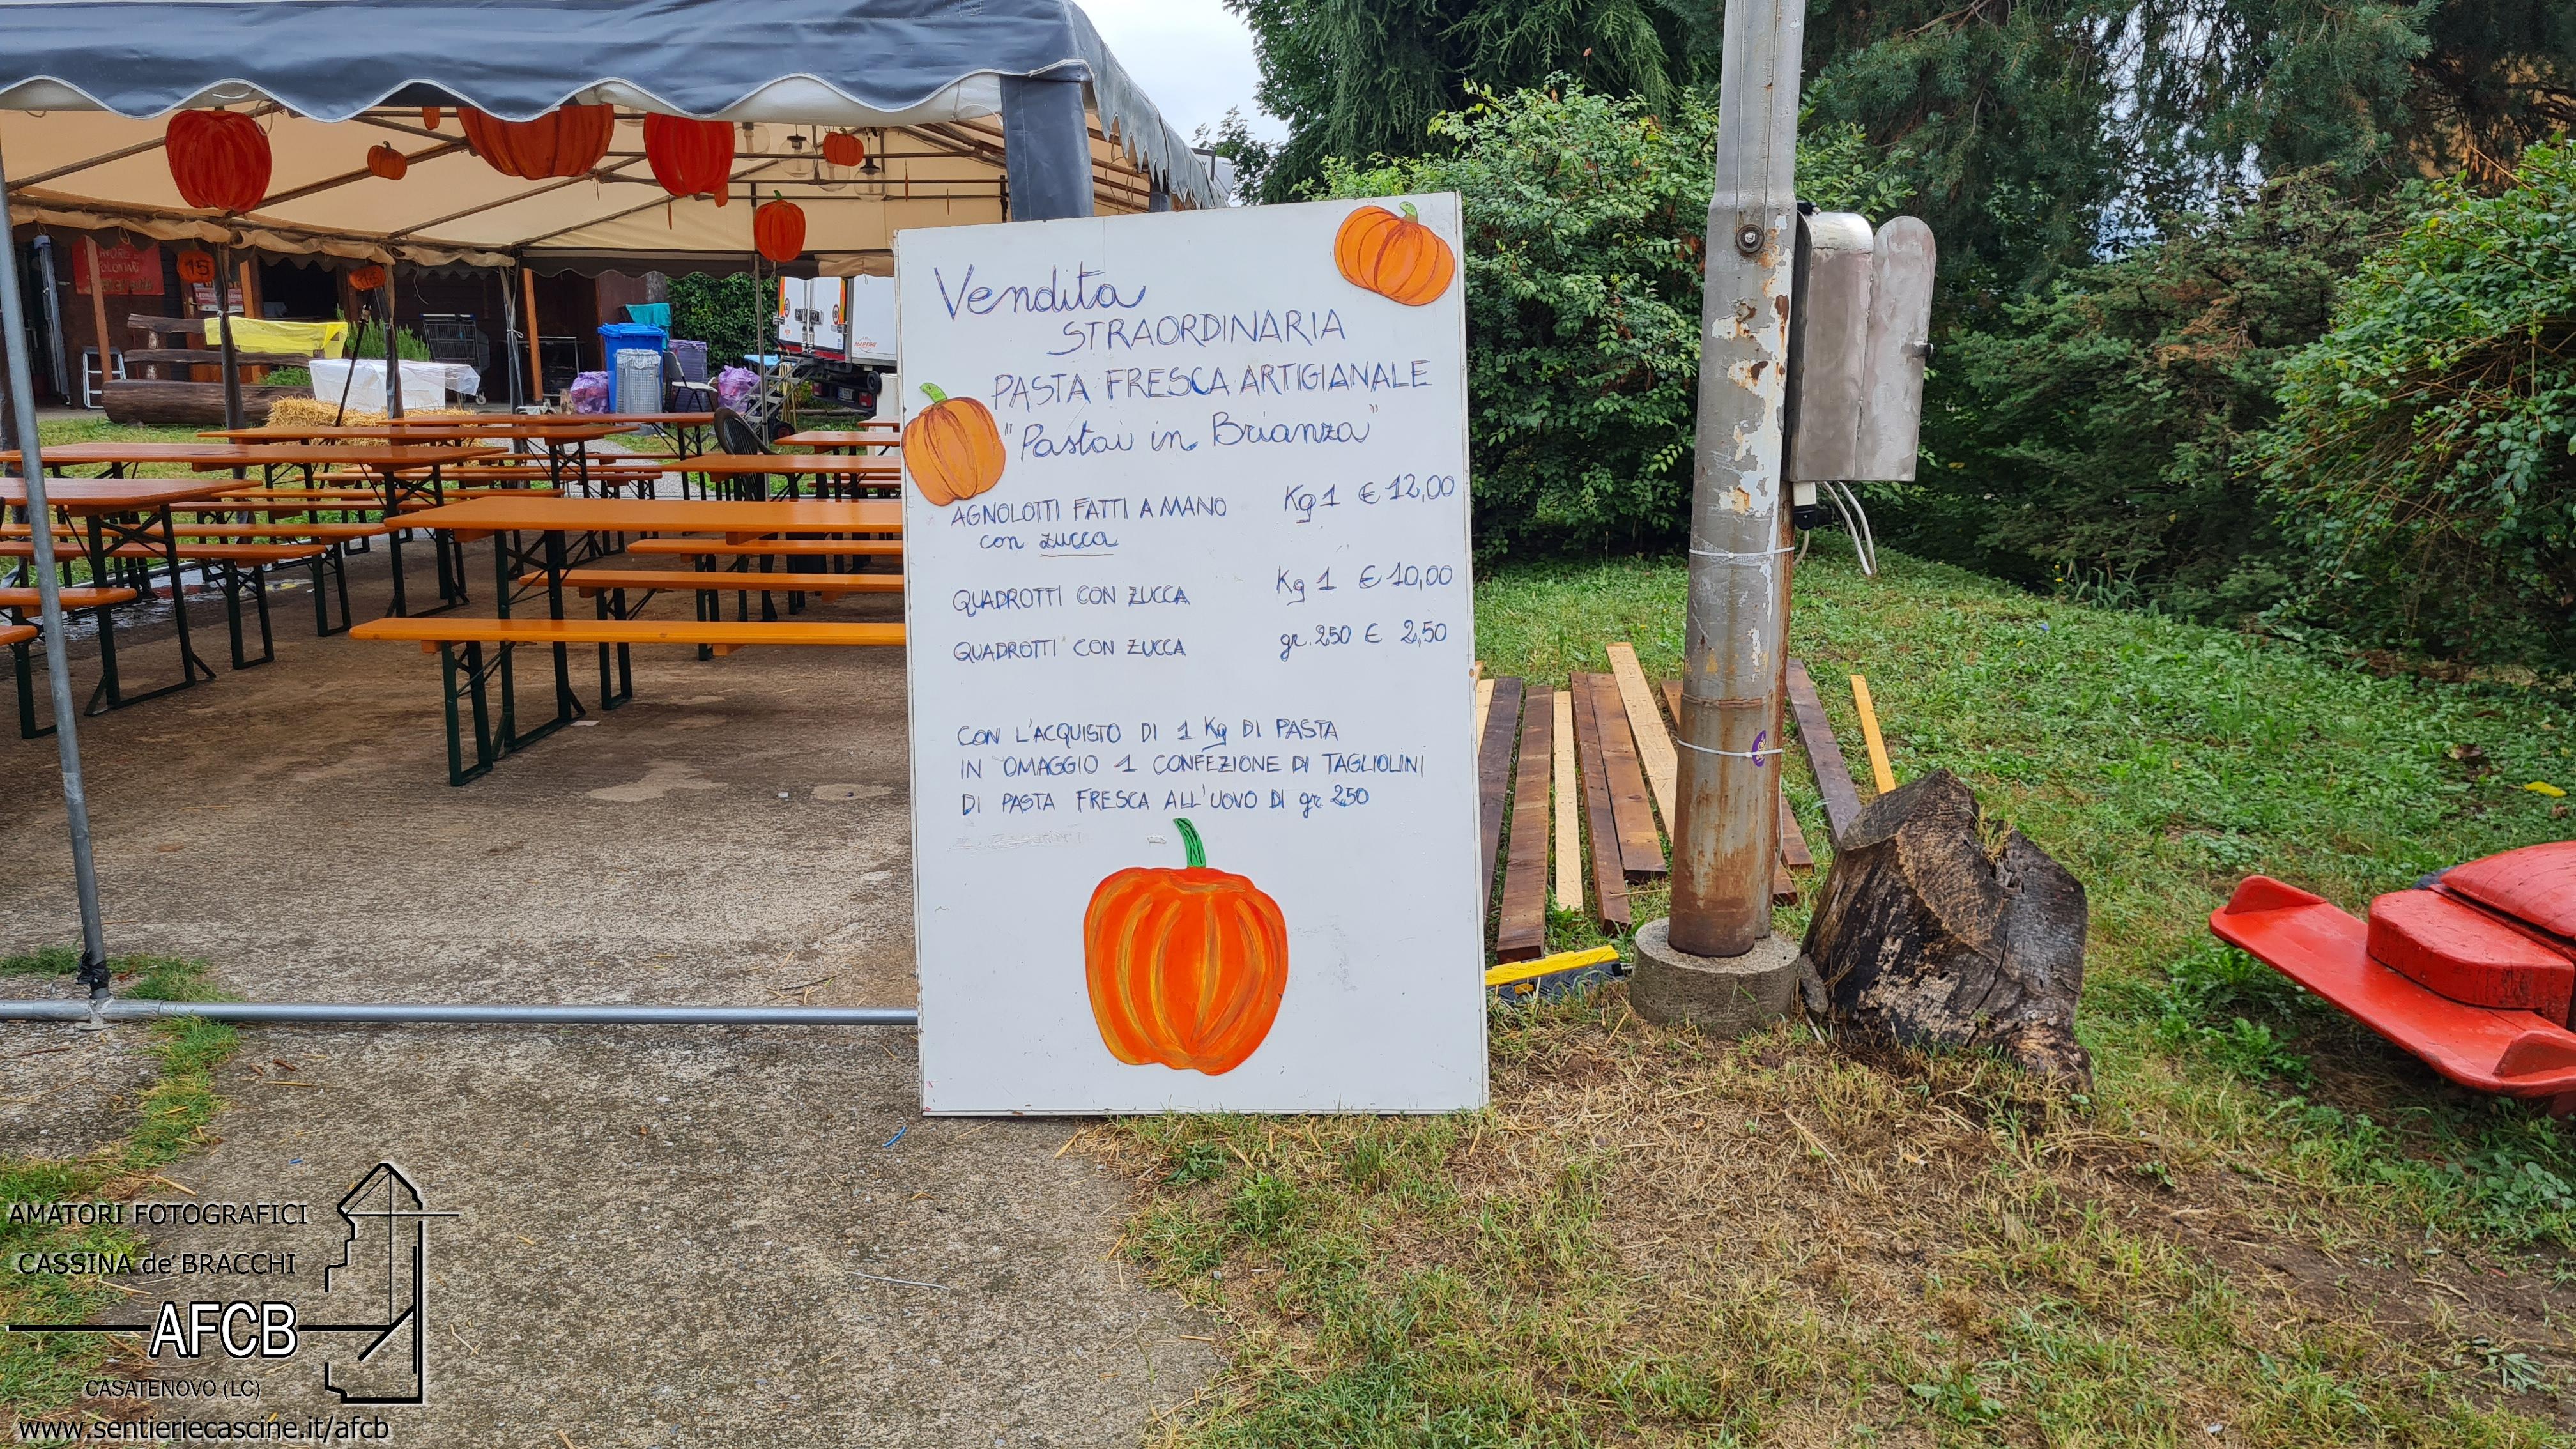 Vendita
STRAORDINARIA
PASTA FRESCA ARTIGIANALE
"Pastai in Brianza"
AGNOLOTTI FATTI A MANO Kg 1 € 12,00
con zucca
QUADROTTI CON ZUCCA Kg 1 € 10,00
QUADROTTI CON ZUCCA gr. 250 € 2,50
CON L'ACQUISTO DI 1 Kg DI PASTA
IN OMAGGIO 1 CONFEZIONE DI TAGLIOLINI
DI PASTA FRESCA ALL'UOVO DI gr 250
15
16
AMATORI FOTOGRAFICI
CASSINA de' BRACCHI
AFCB
CASATENOVO (LC)
www.sentieriecascine.it/afcb